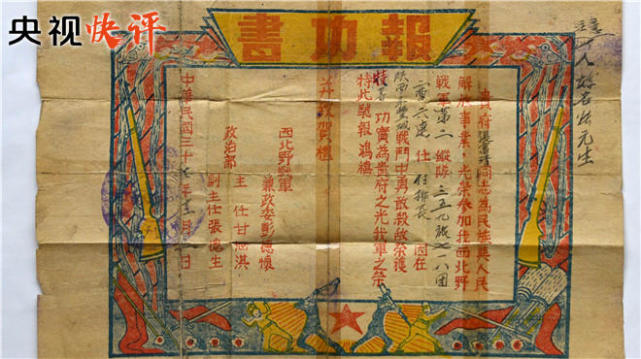 央视快评
報功書
貴府張富清同志為民族與人民
解放事業,光榮參加我西北野
戰軍第二縱隊三五九旅七一八團
二營六連任副排長因在
陝西永豐城戰鬥中勇敢殺敵榮獲
特等功實為貴府之光我軍之榮
特此馳報鴻禧
并致賀禮
西北野戰軍
兼政委彭德懷
政治部
主任甘泗淇
副主任張德生
中華民國三十七年十二月日
注意
人姓名